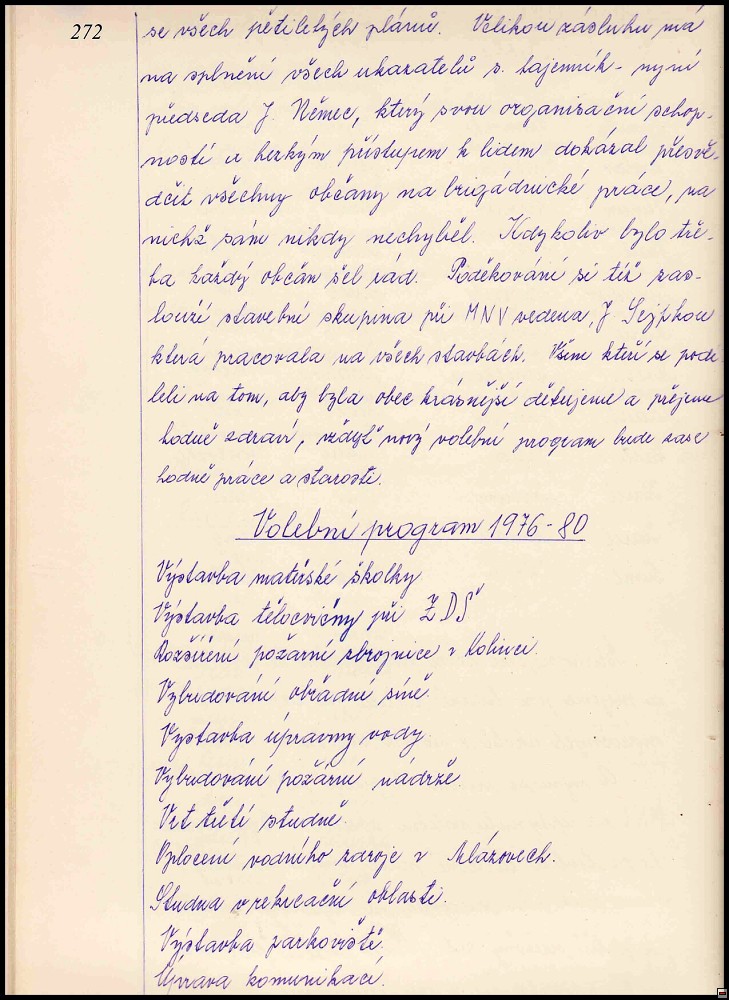 272
se všech pětiletých plánů. Velikou zásluhu má
na splnění všech ukazatelů s. tajemník - nyní
předseda J. Němec, který svou organisační schop-
ností a hezkým přístupem k lidem dokázal přesvě-
dčit všechny občany na brigádnické práce, na
nichž sám nikdy nechyběl. Kdykoliv bylo tře-
ba každý občan šel rád. Poděkování si též zas-
louží stavební skupina při MNV vedena, J Sejpkou
která pracovala na všech stavbách. Všem kteří se podí
leli na tom, aby byla obec krásnější děkujeme a přejeme
hodně zdraví, vždyť nový volební program bude zase
hodně práce a starosti.
Volební program 1976-80
Výstavba mateřské školky
Výstavba tělocvičny při ZDŠ
Rozšíření požární zbrojnice v Kolinci.
Vybudování obřadní síně.
Výstavba úpravny vody
Vybudování požární nádrže.
Vrt třetí studně.
Oplocení vodního zdroje v Mlázovech.
Studna v rekreační oblasti.
Výstavba parkoviště.
Úprava komunikací.